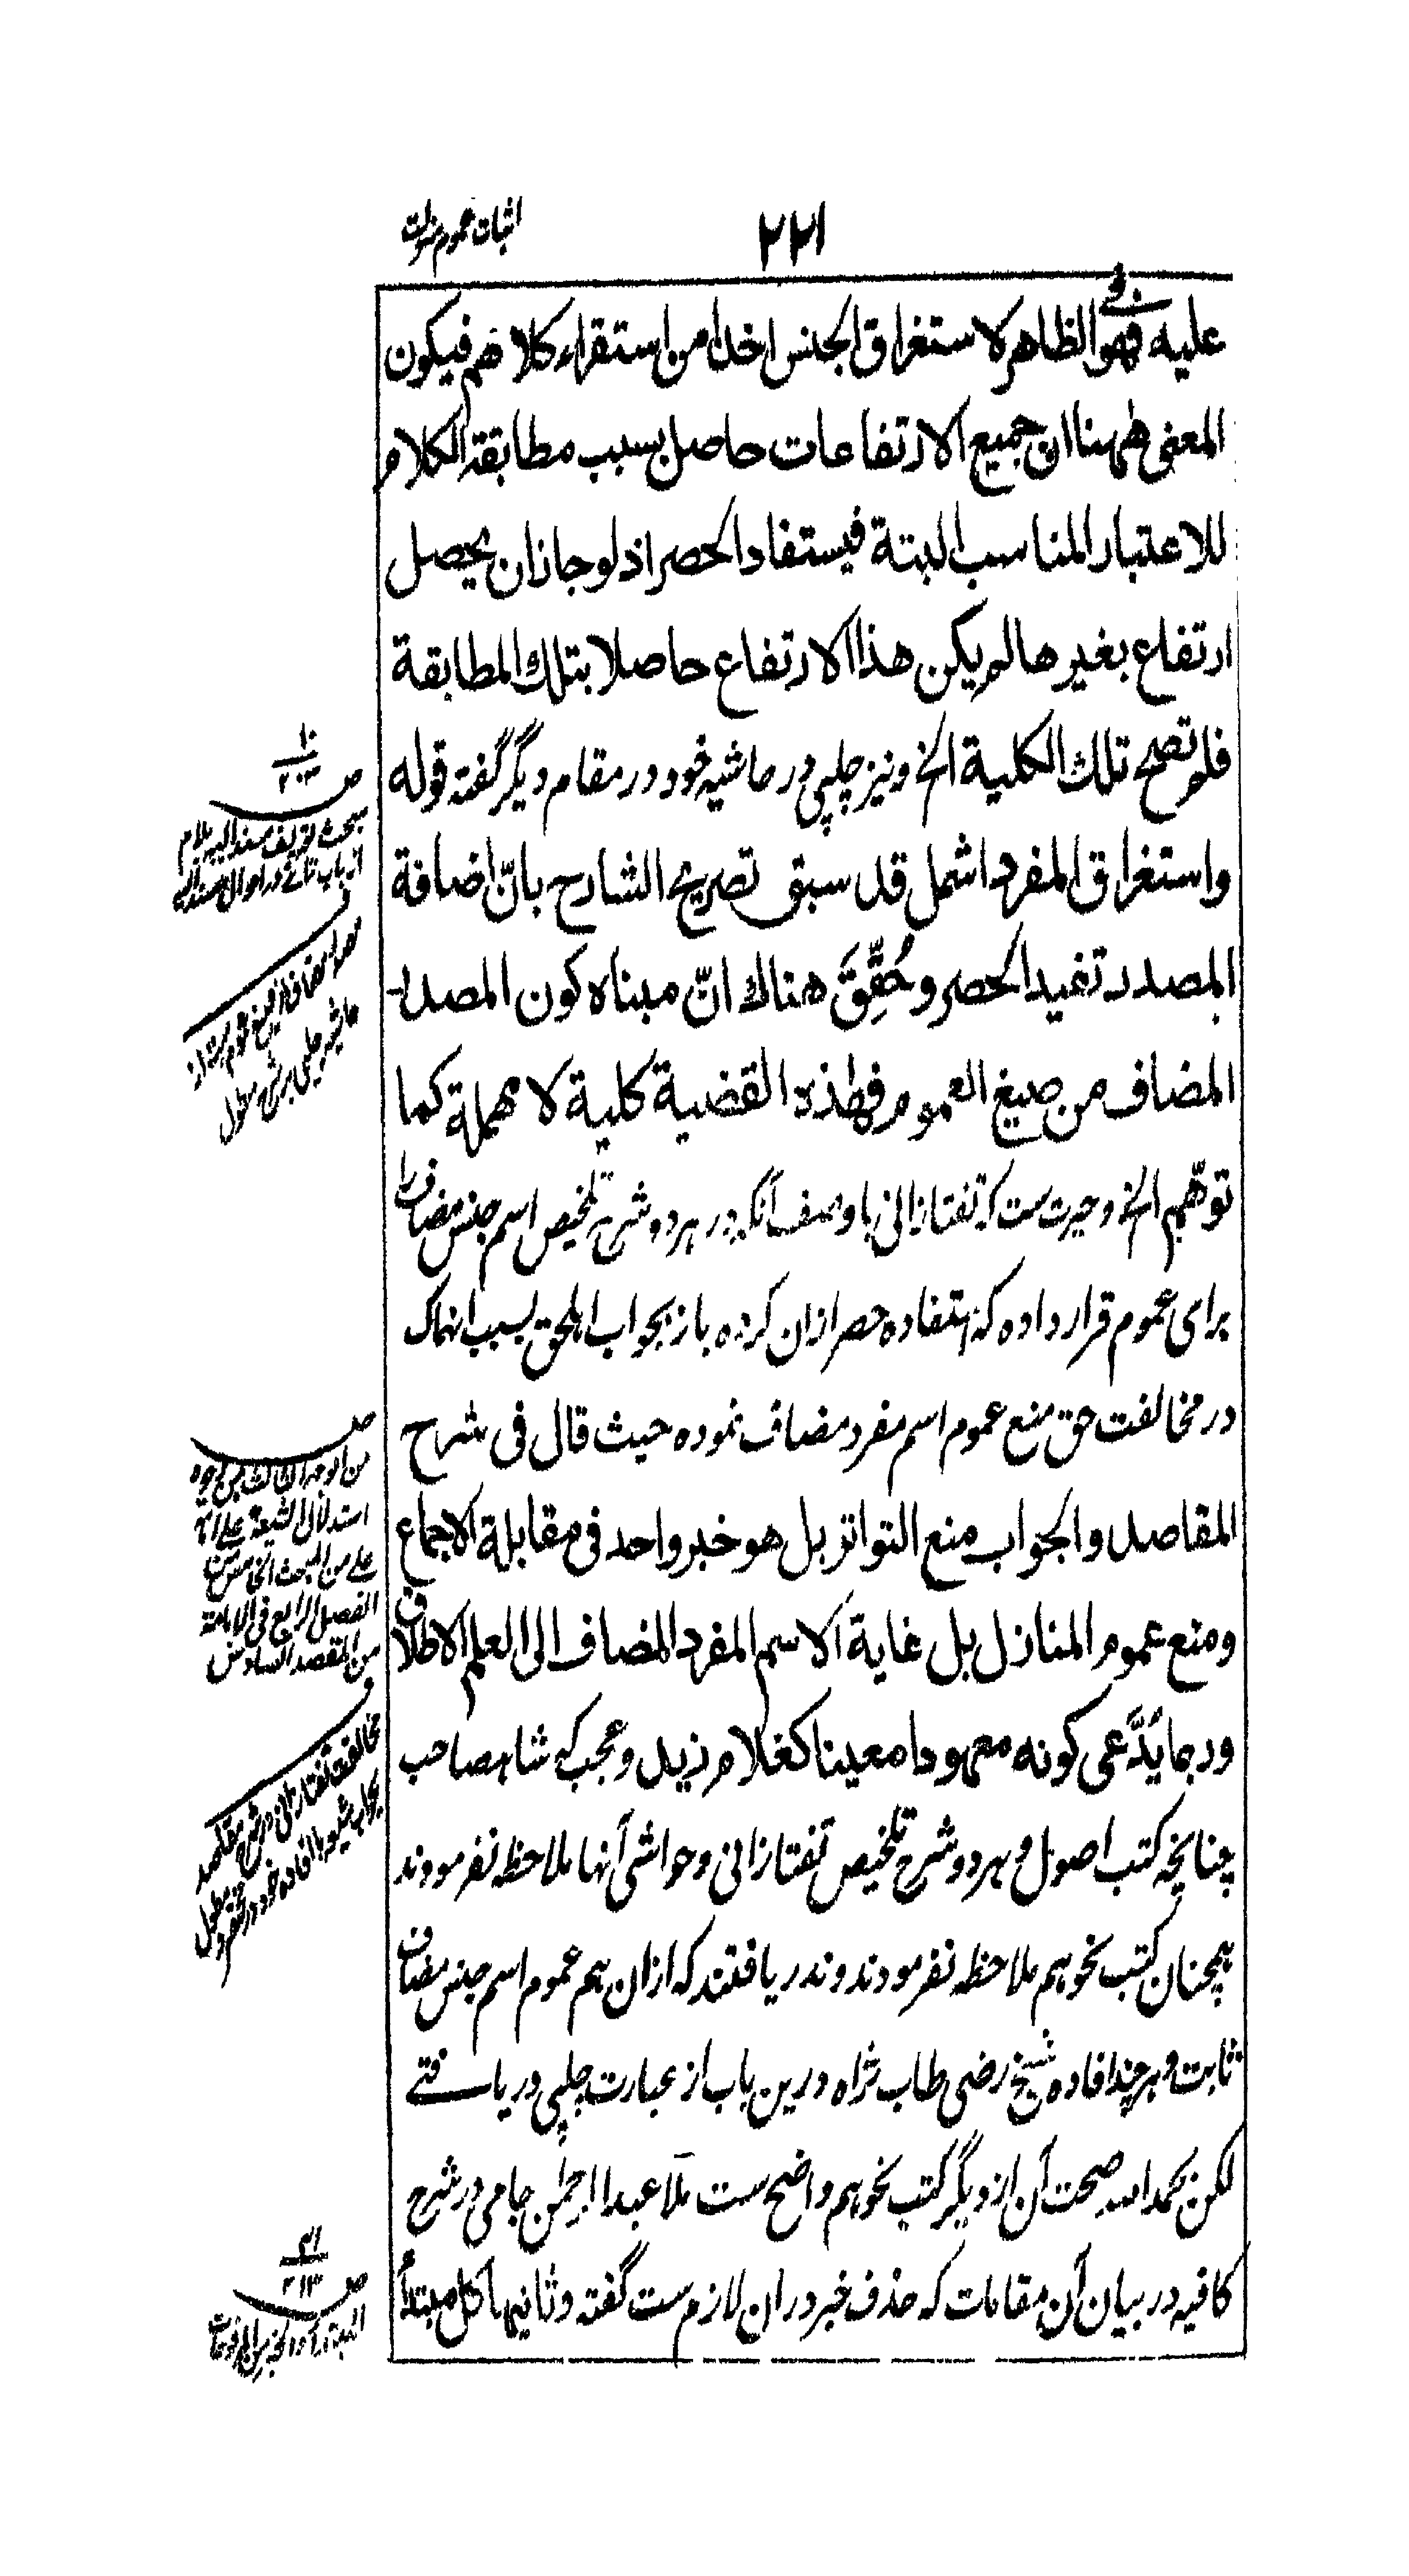 ۲۲۱
اثبات عموم منزلت
علیه فهو الظاهر لاستغراق الجنس اخذا من استقراء کلامهم فیکون
المعنی ههنا ان جمیع الارتفاعات حاصل بسبب مطابقة الکلام
للاعتبار المناسب البتة فیستفاد الحصر اذ لو جاز ان یحصل
ارتفاع بغیرها لم یکن هذا الارتفاع حاصلا بتلك المطابقة
فلم تصح تلك الکلیة الخ ونیز چلپی در حاشیه خود در مقام دیگر گفته قوله
واستغراق المفرد اشمل قد سبق تصریح الشارح بانّ اضافة
المصدر تفید الحصر وحُقِّقَ هناك انّ مبناه کون المصدر
المضاف من صیغ العموم فهذه القضیة کلیة لا مهملة کما
توهّم الخ وحیرت ست که تفتازانی با وصف آنکه در هر دو شرح تلخیص اسم جنس مضاف را
برای عموم قرار داده که استفاده حصر ازان کرده باز بجواب اهل حق بسبب انهماک
در مخالفت حق منع عموم اسم مفرد مضاف نموده حیث قال فی شرح
المقاصد والجواب منع التواتر بل هو خبر واحد فی مقابلة الاجماع
ومنع عموم المنازل بل غایة الاسم المفرد المضاف الی العلم الاطلاق
وربما یدَّعی کونه معهودا معینا کغلام زید وعجب که شاهصاحب
چنانچه کتب اصول و هر دو شرح تلخیص تفتازانی و حواشی آنها ملاحظه نفرمودند
همچنان کتب نحو هم ملاحظه نفرمودند و ندریافتند که ازان هم عموم اسم جنس مضاف
ثابت و هر چند افاده شیخ رضی طاب ثراه درین باب از عبارت چلپی دریافتے
لکن بحمد الله صحت آن از دیگر کتب نحو هم واضح ست ملّا عبد الرحمن جامی در شرح
کافیه در بیان آن مقامات که حذف خبر دران لازم ست گفته وثانیها کل مبتدأ
مبحث تعریف مسند الیه بلام
از باب ثانی در احوال مسند الیه
حاشیه چلپی بر شرح مطول
من الوجه الثالث من وجوه
استدلال الشیعة علی امامة
علی من المبحث الخامس من
الفصل الرابع فی الامامة
من المقصد السادس
مخالفت تفتازانی در شرح مقاصد
بجواب شیعه با افاده خود در مختصر و مطول